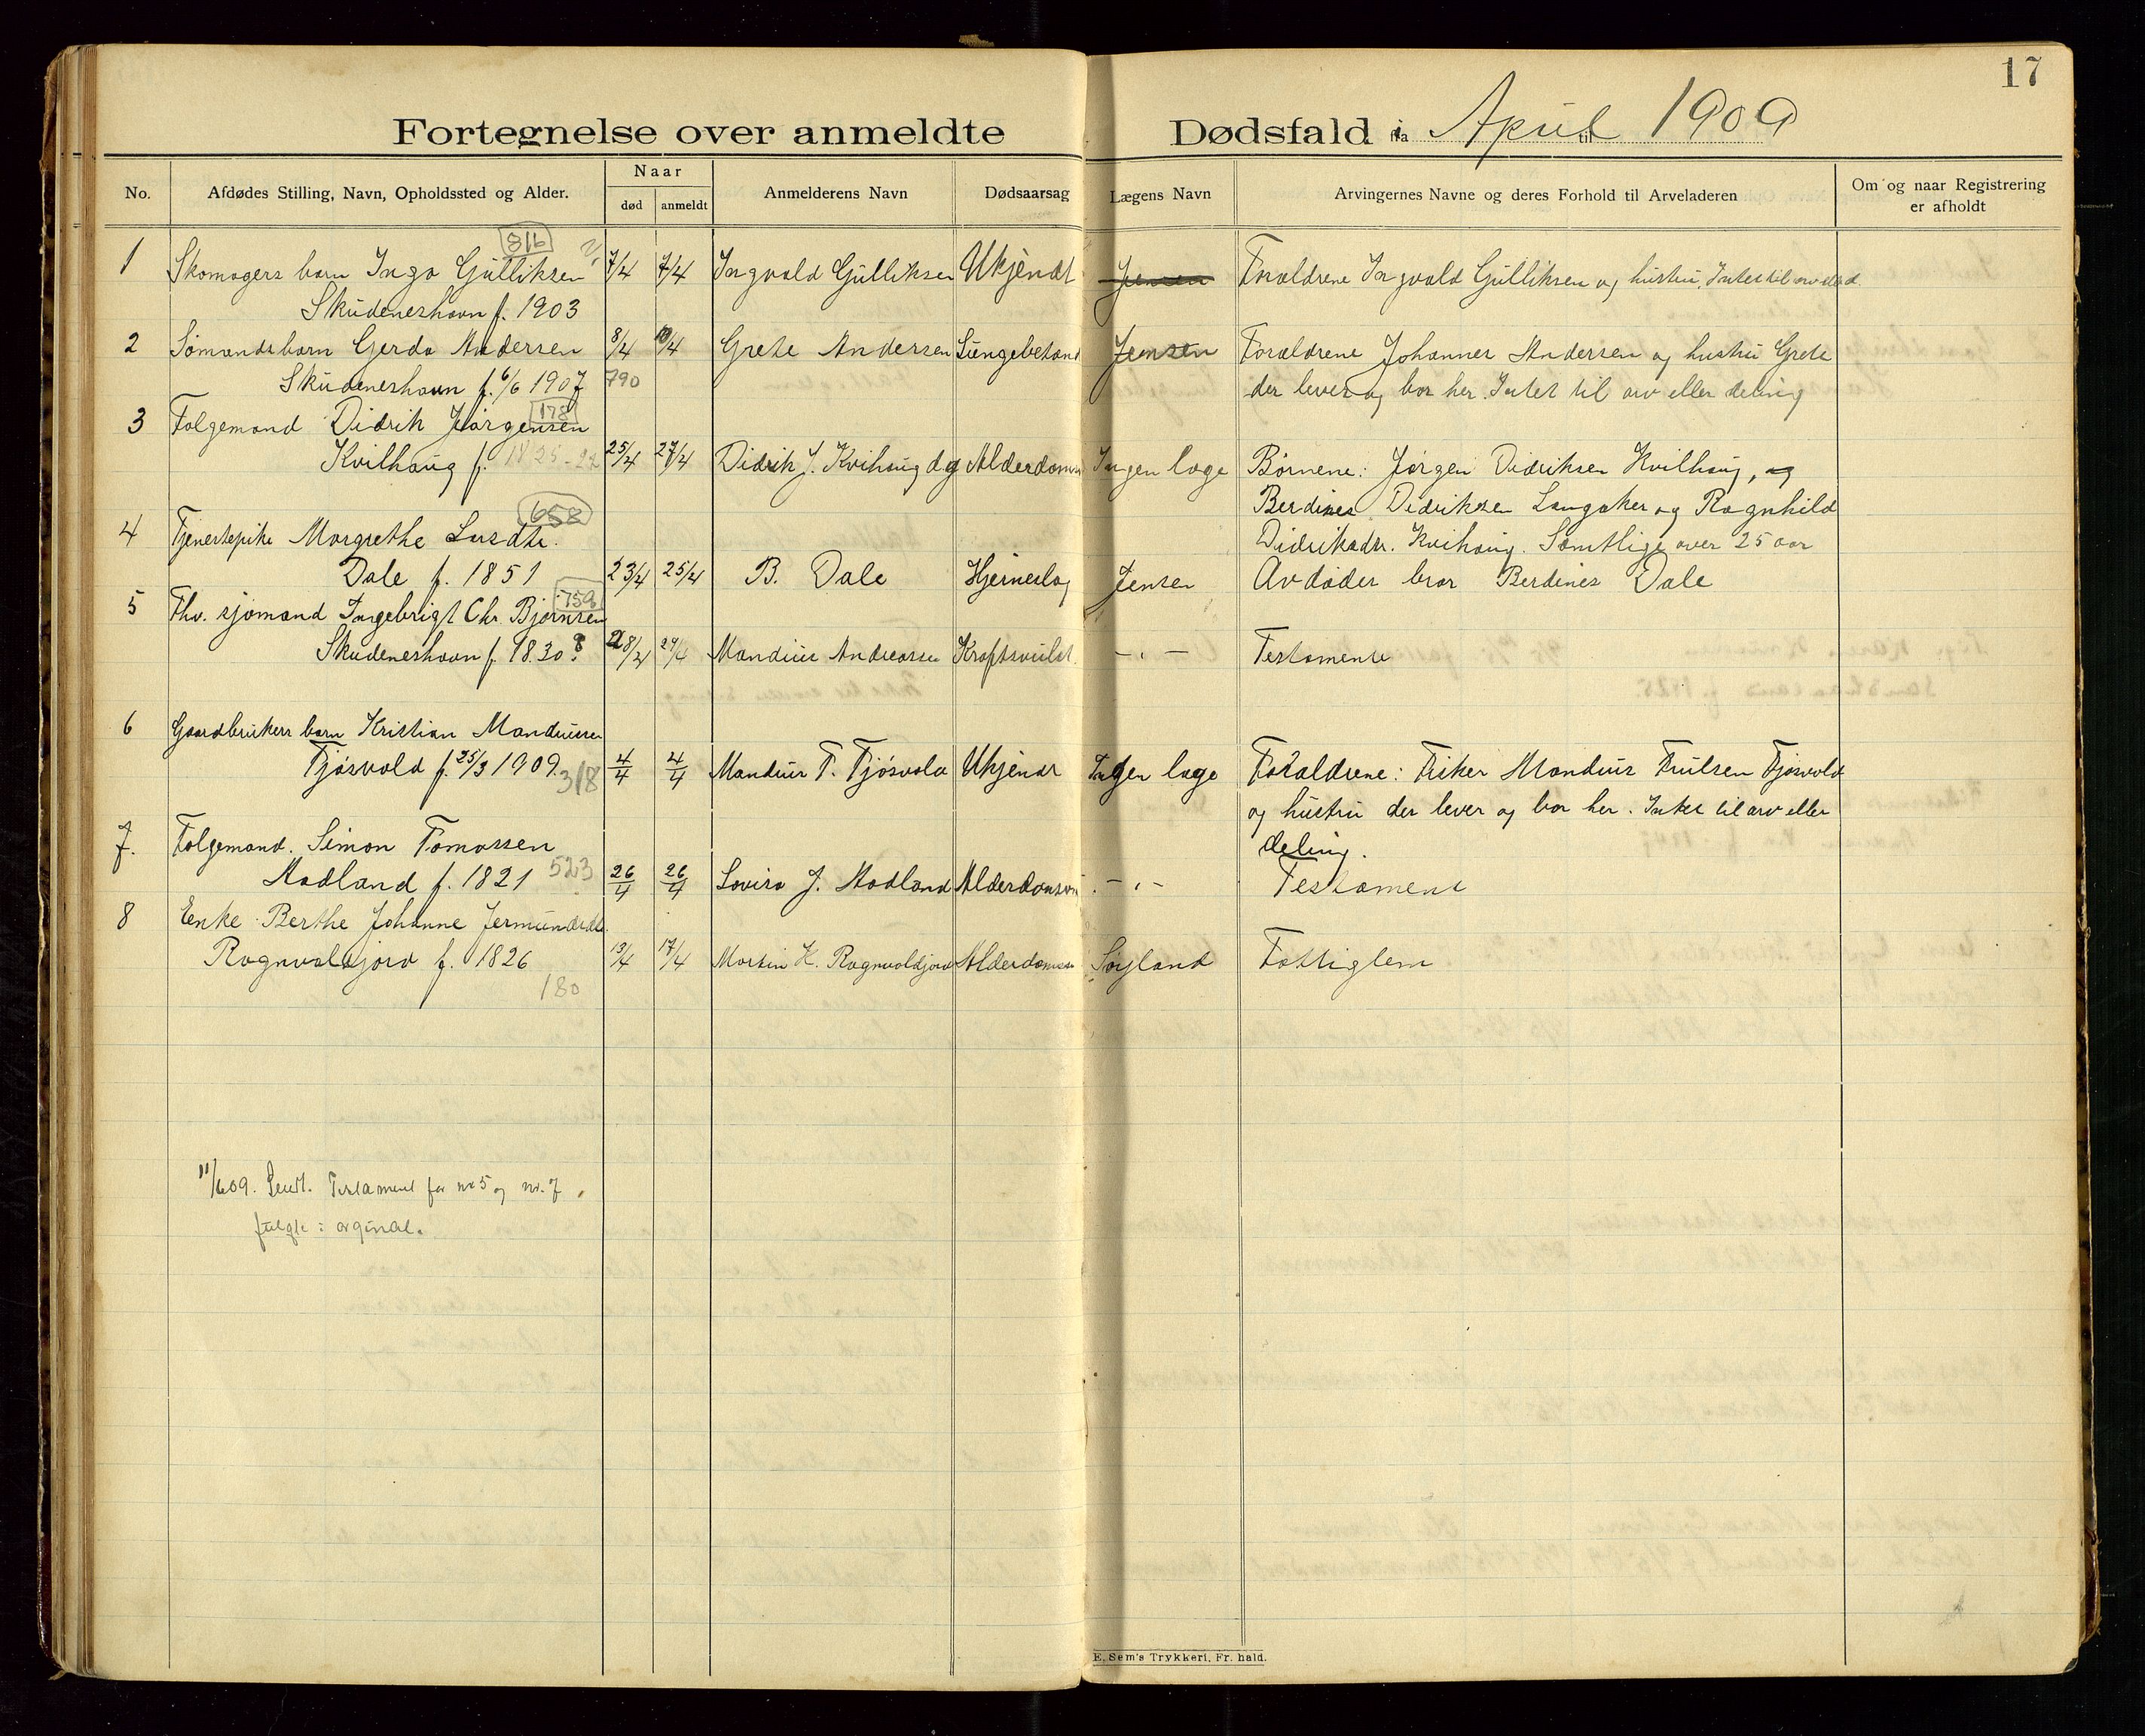 17
Fortegnelse over anmeldte Dødsfald i April 1909
No. Afdødes Stilling, Navn, Opholdssted og Alder. Naar død anmeldt Anmelderens Navn Dødsaarsag Lægens Navn Arvingernes Navne og deres Forhold til Arveladeren Om og naar Registrering er afholdt
816
1 Skomagers barn Inga Gulliksen 7/4 7/4 Ingvald Gulliksen Ukjendt Jensen Forældrene Ingvald Gulliksen og hustru. Intet til arv
Skudeneshavn f. 1903
2 Sømands barn Gerda Andersen 8/4 10/4 Grete Andersen Lungebetænd Jensen Forældrene Johannes Andersen og hustru Grete
Skudeneshavn f. 6/6 1907 790 der lever og bor her. Intet til arv eller deling
3 Følgemand Didrik Jørgensen 178
Kvilhaug f. 25/4 27/4 Didrik J. Kvihaug Alderdoms Ingen læge Børnene: Jørgen Didriksen Kvilhaug, og
Berdines Didriksen Langaker og Ragnhild
658
4 Tjenestepike Margrethe Larsdtr. Didriksdtr. Kvihaug. Samtlige over 25 aar
Dale f. 1851 23/4 25/4 B. Dale Hjerneslag Jensen Avdødes bror Berdines Dale
759
5 Fhv. sjømand Ingebrigt Chr. Bjørnsen
Skudeneshavn f. 1830? 28/4 29/4 Mandius Andreassen Kræftsvulst -"- Testamente
6 Gaardbrukers barn Kristian Mandiussen
Fjøsvold f. 25/3 1909. 318 4/4 4/4 Mandius T. Fjøsvold Ukjendt Ingen læge Forældrene: Fisker Mandius Fjøsvold
og hustru der lever og bor her. Intet til arv eller
7. Følgemand. Simon Tomassen deling.
Aadland f. 1821 523 26/4 26/4 Lovisa J. Aadland Alderdomsv -"- Testament
8 Enke Berthe Johanne Jermundsdtr.
Ragnvaldsjord f. 1826 13/4 17/4 Martin K. Ragnvaldjord Alderdomsv Søyland Fattiglem
180
11/6 09. Sendt. Testament for nr 5 og nr. 7.
E. Sem's Trykkeri, Fr. hald.